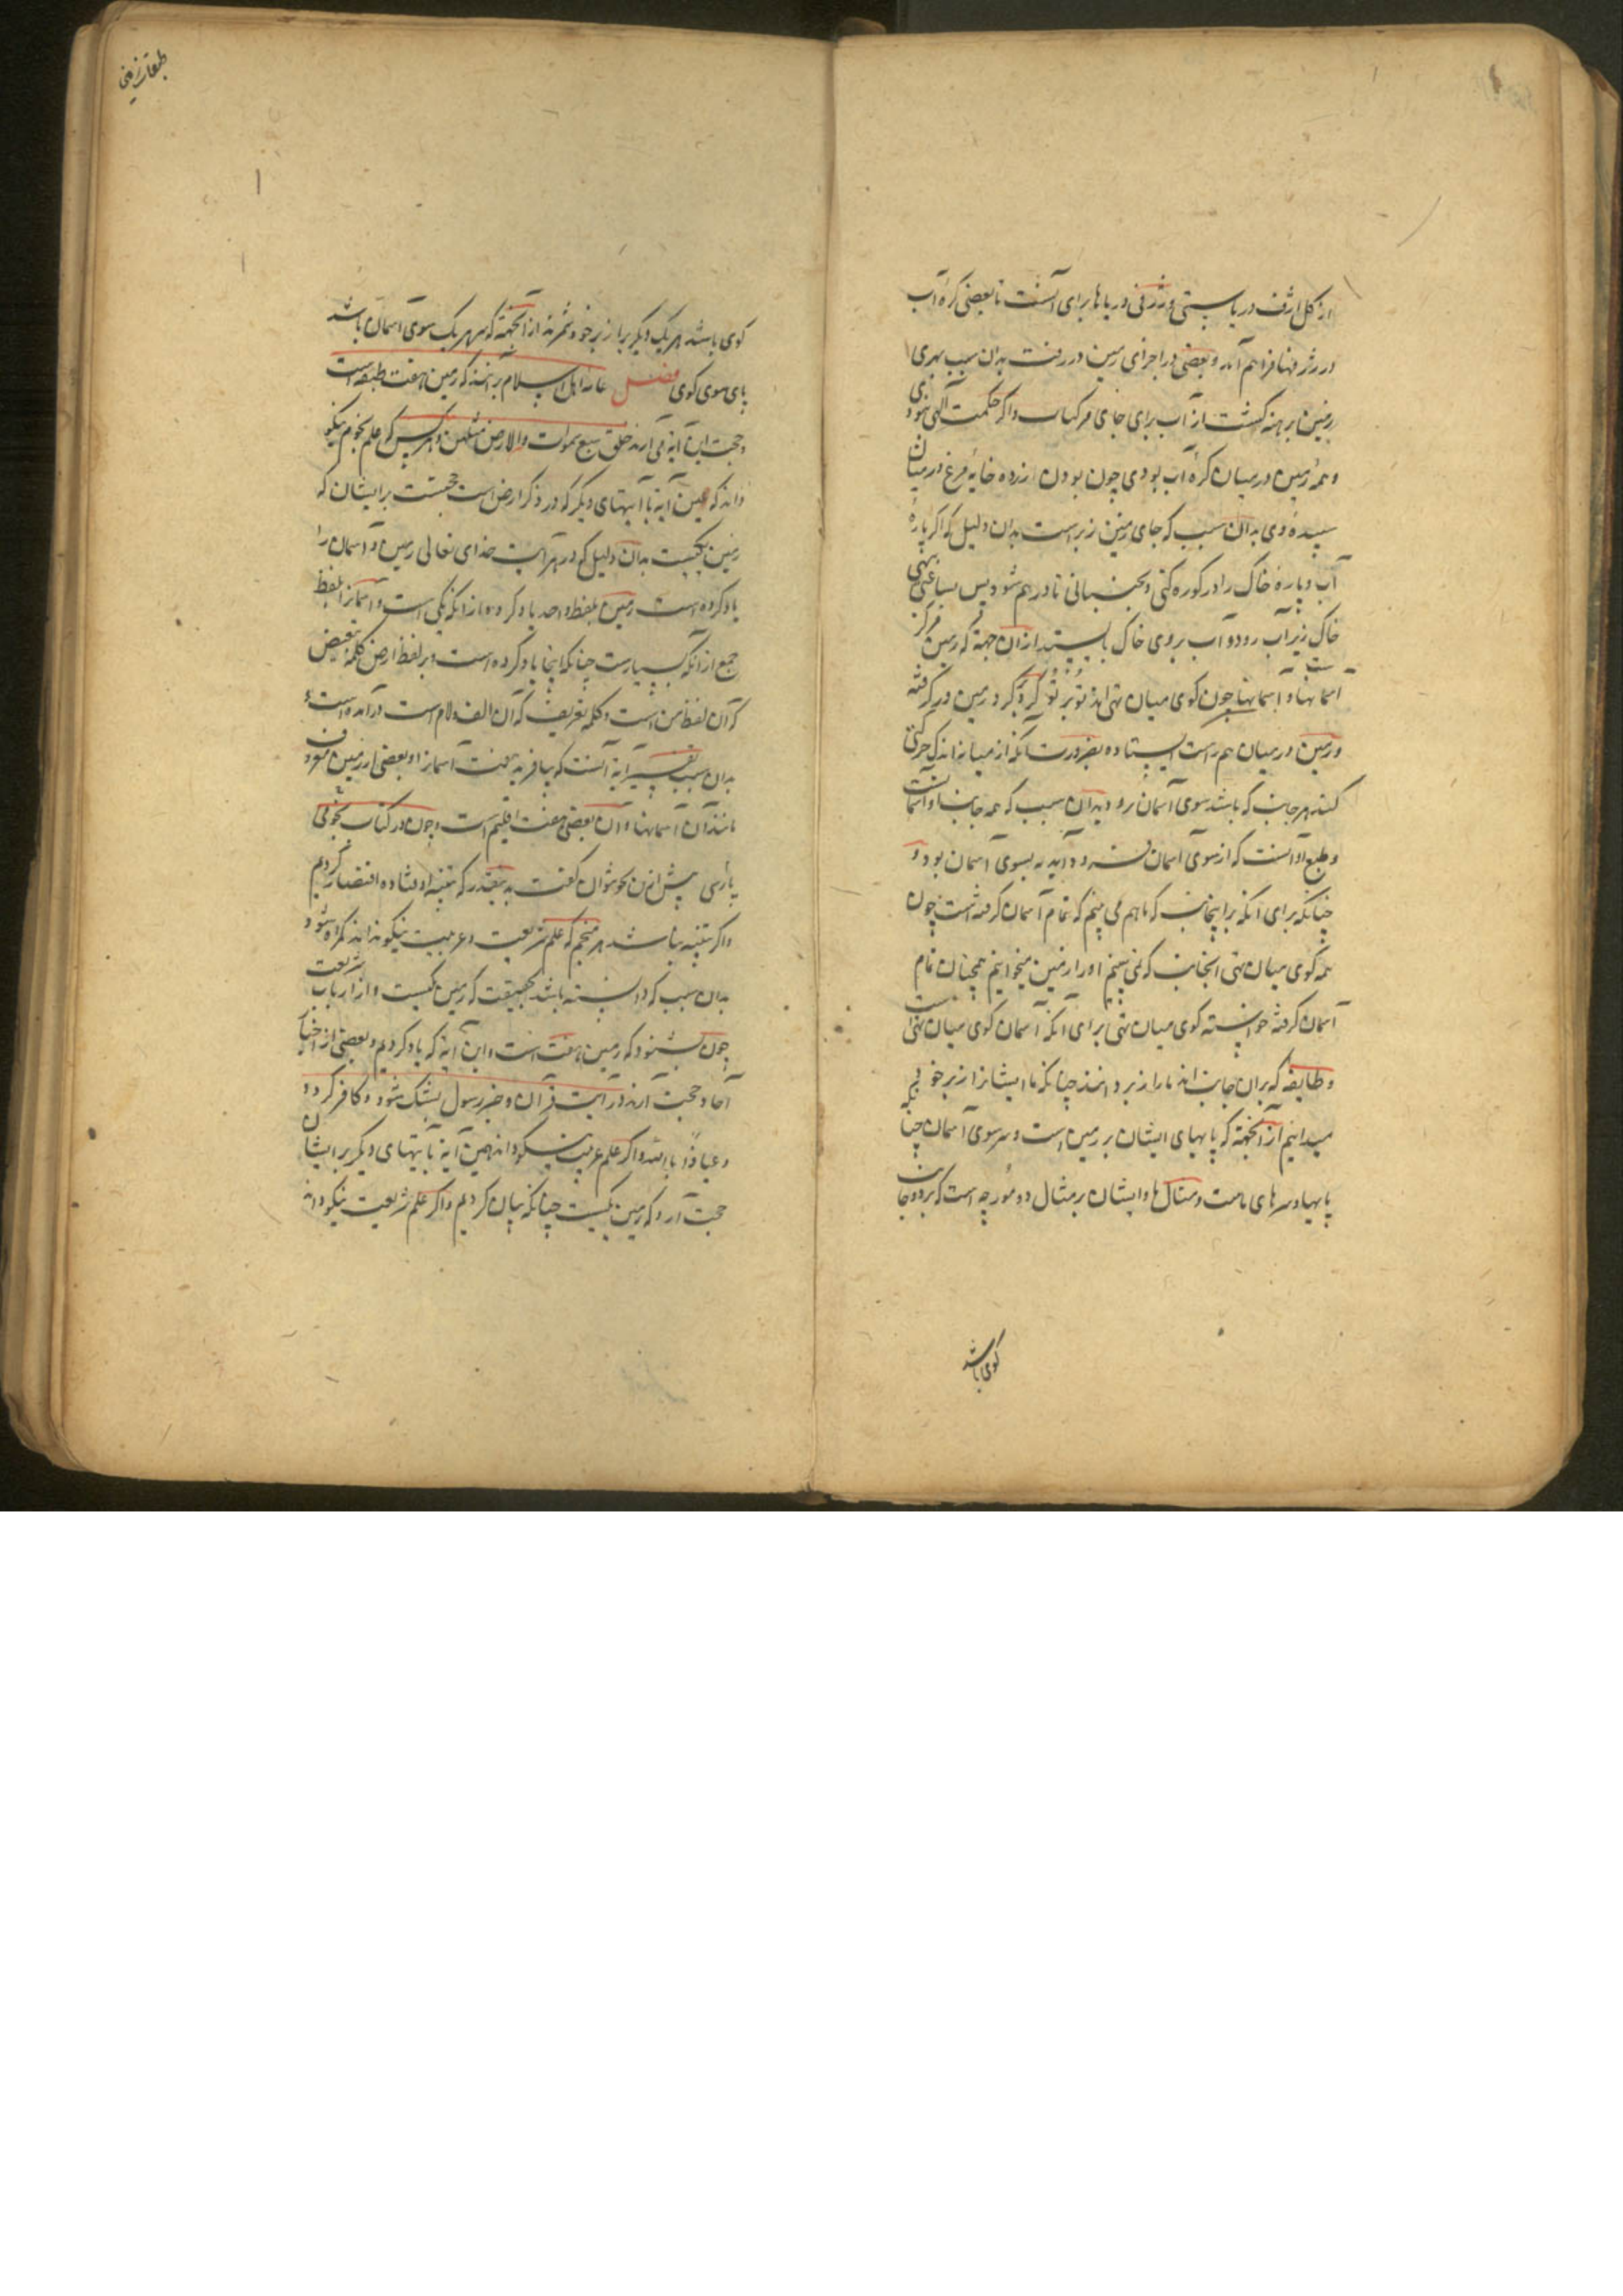 از کل ژرف دریا پستی و ژرفی دریاها برای آنست تا بعضی کرهٔ آب
در ژرفها فراهم آمد و بعضی در اجزای زمین در رفت بدان سبب بهری
زمین برهنه گشت از آب برای جای مرکبات و اگر حکمت الهی نبودی
و همه زمین در میان کرهٔ آب بودی چون بودن زرده خایهٔ مرغ در میان
سپیدهٔ وی بدان سبب که جای زمین زیر است بدان دلیل که اگر پارهٔ
آب و پارهٔ خاک را در کوزه کنی و بجنبانی تا در هم شود پس ساعتی بنهی
خاک زیر آب رود و آب بر روی خاک بایستد ازان جهة که زمین مرکز
آسمانهاست و آسمانها چون کوی میان تهی اند تو بر تو گرد گرد زمین در گرفته
و زمین در میان هم راست ایستاده بضرورت آنکه از میانه اندک حرکتی
کند هر جانب که باشد سوی آسمان رود بدان سبب که همه جانب او آسمانست
و طبع او آنست که از سوی آسمان فرود آید نه بسوی آسمان بود و
چنانکه برای آنکه بر اینجانب که ما هم می بینم که تمام آسمان گرفته است چون
همه کوی میان تهی آنجانب که نمی بینم او را زمین میخوانیم همچنان تمام
آسمان گرفته خوانسته کوی میان تهی برای آنکه آسمان کوی میان تهی است
و طایفه که بران جانب اند ما را زبر دانند چنانکه ما ایشانرا زبر خود
میدانیم از آنجهة که پایهای ایشان بر زمین است و سر سوی آسمان چنانکه
پایها و سرهای ماست و مثال ما و ایشان بر مثال دو مورچه است که بر دو جانب
کوی باشد
طبقات زمین
کوی باشد هر یک دیگر را زبر خود شمرند از آنجهة که سر هر یک سوی آسمان باشد
پای سوی کوی فصل عامهٔ اهل اسلام برانند که زمین هفت طبقه است
و حجت این آیه می آرند خلق سبع سموات و من الارض مثلهن و هر کس که علم نجوم نیکو
داند که همین آیه با آیتهای دیگر که در ذکر ارض است حجتست بر ایشان که
زمین یکیست بدان دلیل که در هر آیت خدای تعالی زمین و آسمان را
یاد کرده است زمین بلفظ واحد یاد کرده از آنکه یکی است و آسمانرا بلفظ
جمع از آنکه بسیارست چنانکه اینجا یاد کرده است و بر لفظ ارض کلمهٔ تبعیض
که آن لفظ من است و کلمهٔ تعریف که آن الف و لام است در آمده است
بدان سبب تفسیر آیه آنست که بیافرید هفت آسمانرا و بعضی از زمین
مانند آن آسمانها و آن بعضی هفت اقلیم است و چون در کتاب نجومی
پارسی پیش ازین نحو نتوان گفت بدینقدر که تنبیه اوفتاده اقتصار کردیم
و اگر تنبیه نباشد هر منجم که علم شریعت و عربیت نیکو نداند گمراه شود
بدان سبب که دانسته باشد بحقیقت که زمین یکیست و از ارباب شریعت
چون بشنود که زمین هفت است و این آیه که یاد کردیم و بعضی از اخبار
آحاد حجت آرند در آیت قرآن و خبر رسول بشک شود و کافر گردد
و عیاذا بالله و اگر علم عربیت نیکو داند همین آیه با آیتهای دیگر بر ایشان
حجت آرد که زمین یکیست چنانکه بیان کردیم و اگر علم شریعت نیکو داند